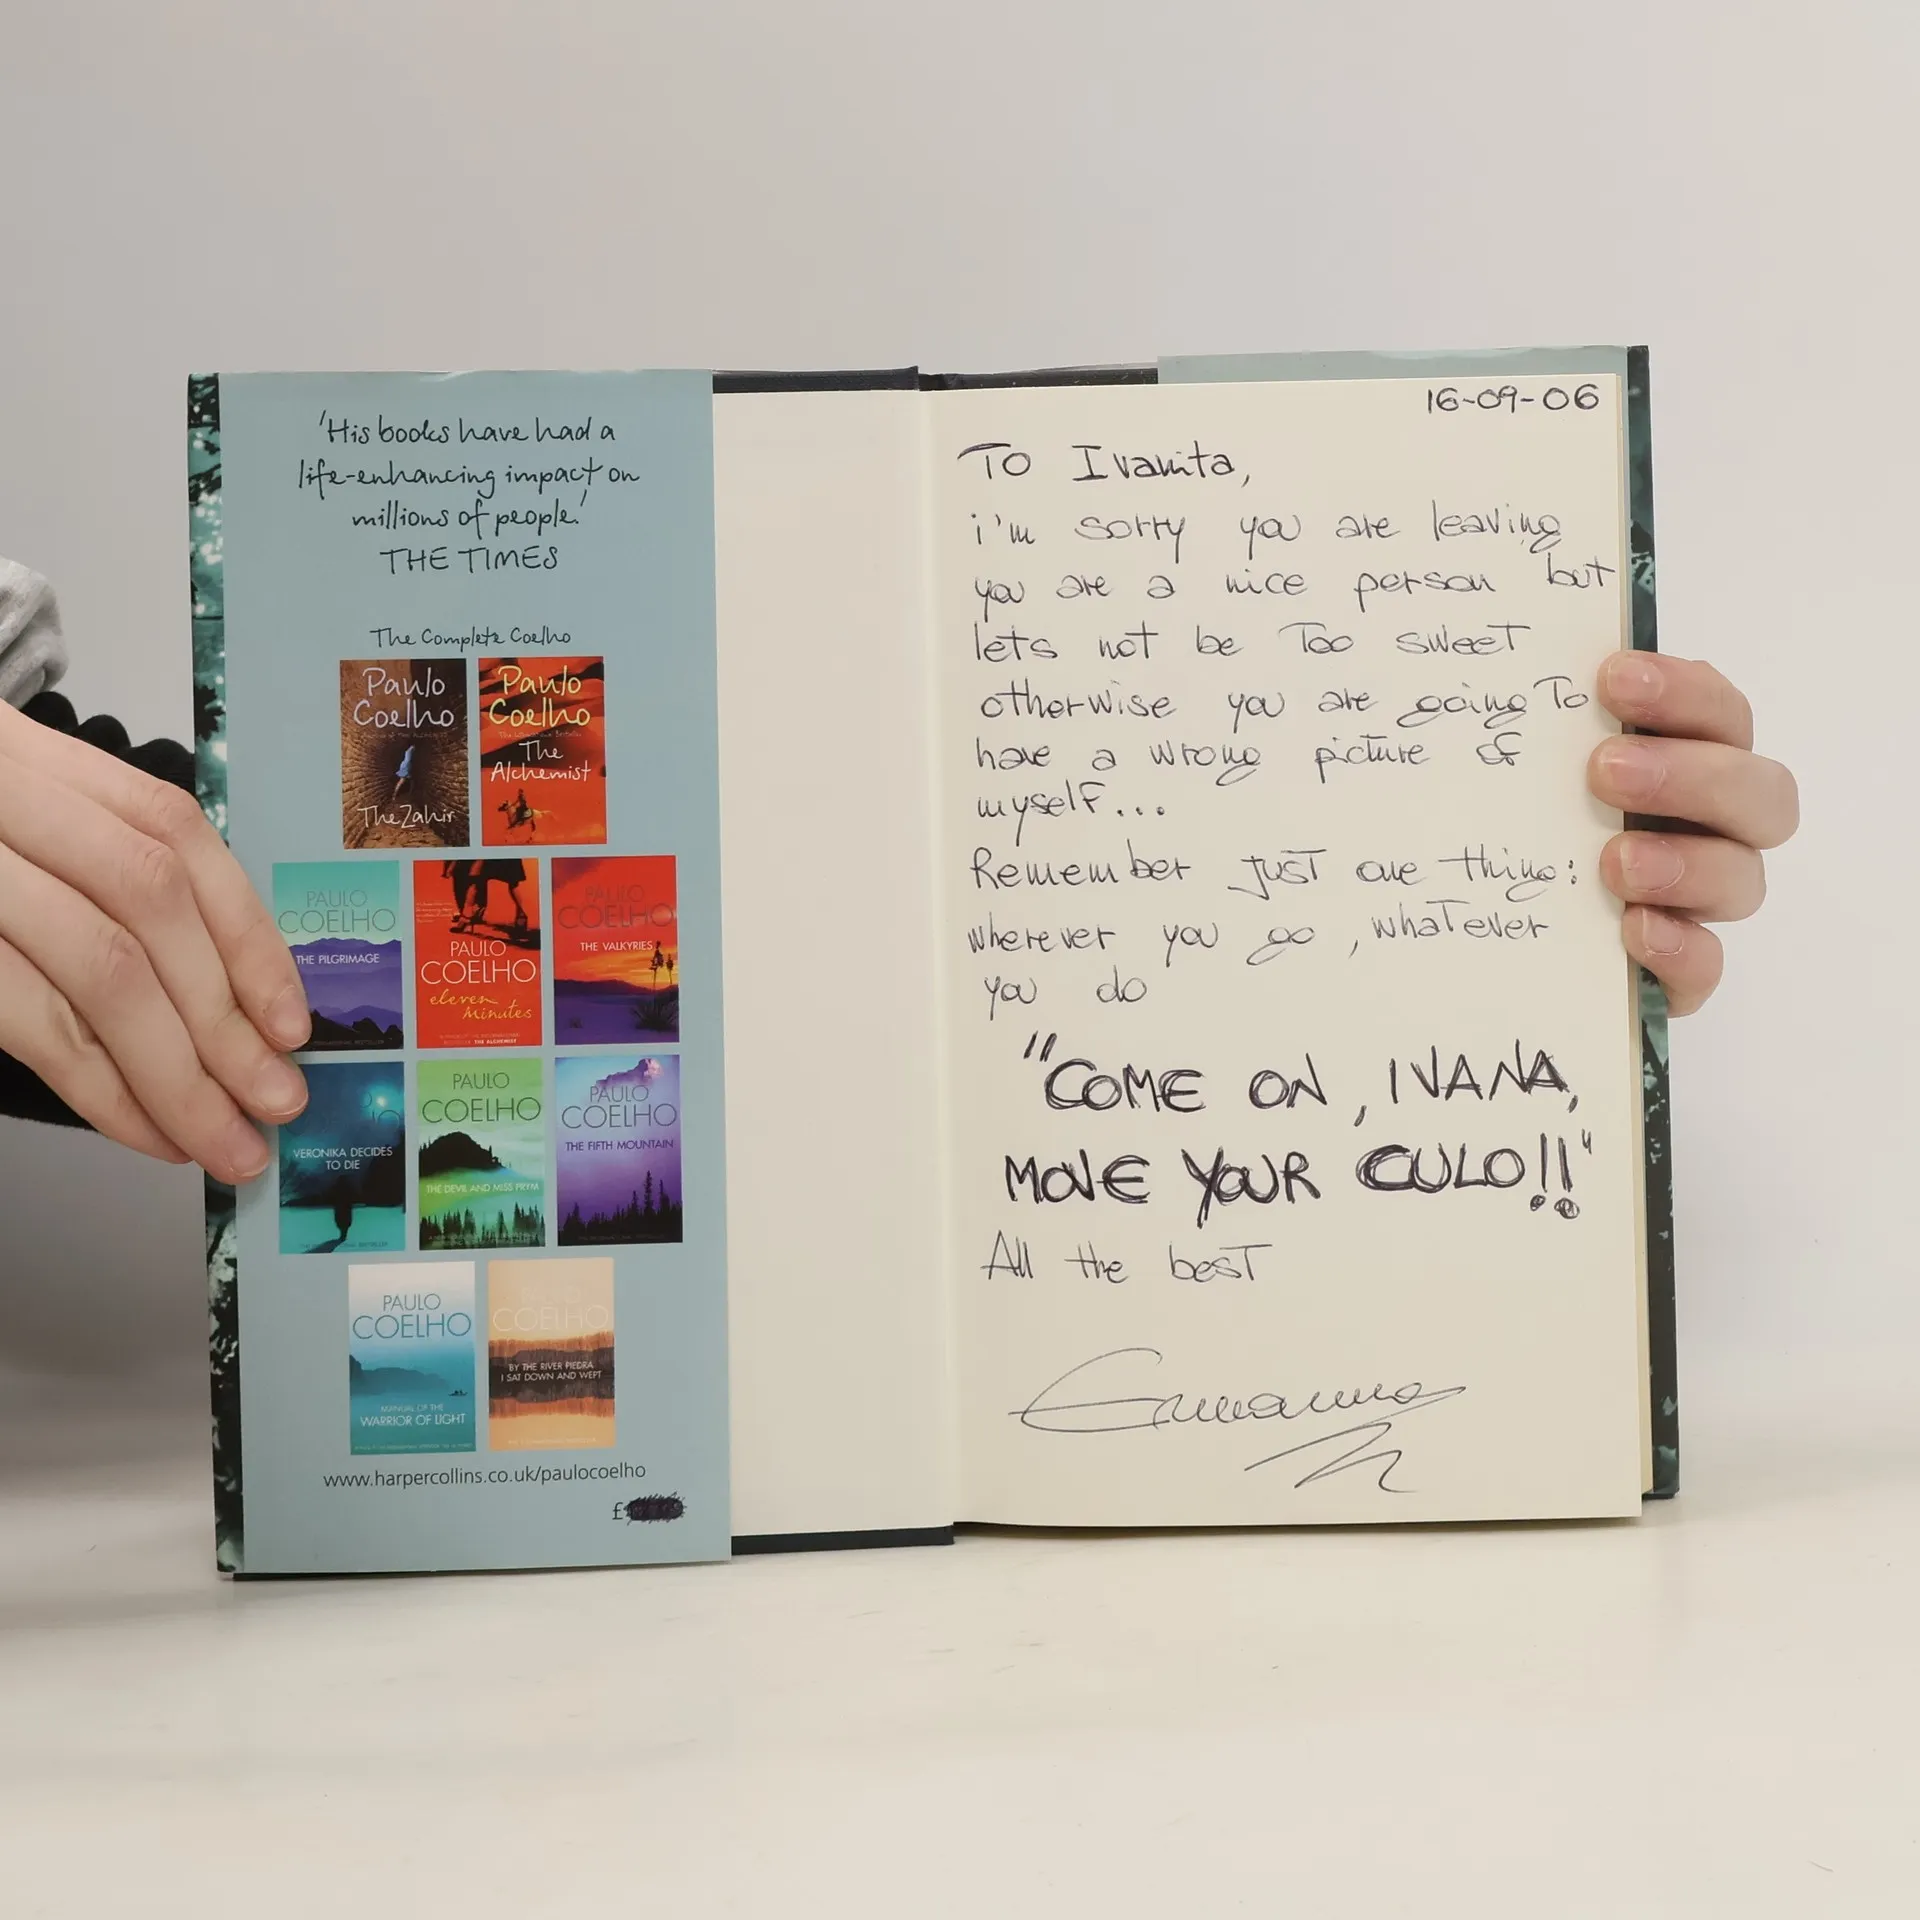 'His books have had a
life-enhancing impact on
millions of people.'
THE TIMES
The Complete Coelho
Paulo
Coelho
The Zahir
Paulo
Coelho
The
Alchemist
PAULO
COELHO
THE PILGRIMAGE
PAULO
COELHO
eleven
Minutes
PAULO
COELHO
THE VALKYRIES
VERONIKA DECIDES
TO DIE
PAULO
COELHO
THE DEVIL AND MISS PRYM
PAULO
COELHO
THE FIFTH MOUNTAIN
PAULO
COELHO
MANUAL OF THE
WARRIOR OF LIGHT
COELHO
BY THE RIVER PIEDRA
I SAT DOWN AND WEPT
www.harpercollins.co.uk/paulocoelho
£
16-09-06
To Ivanita,
i'm sorry you are leaving
you are a nice person but
lets not be too sweet
otherwise you are going to
have a wrong picture of
myself...
Remember just one thing:
wherever you go, whatever
you do
"COME ON, IVANA,
MOVE YOUR CULO!!"
All the best